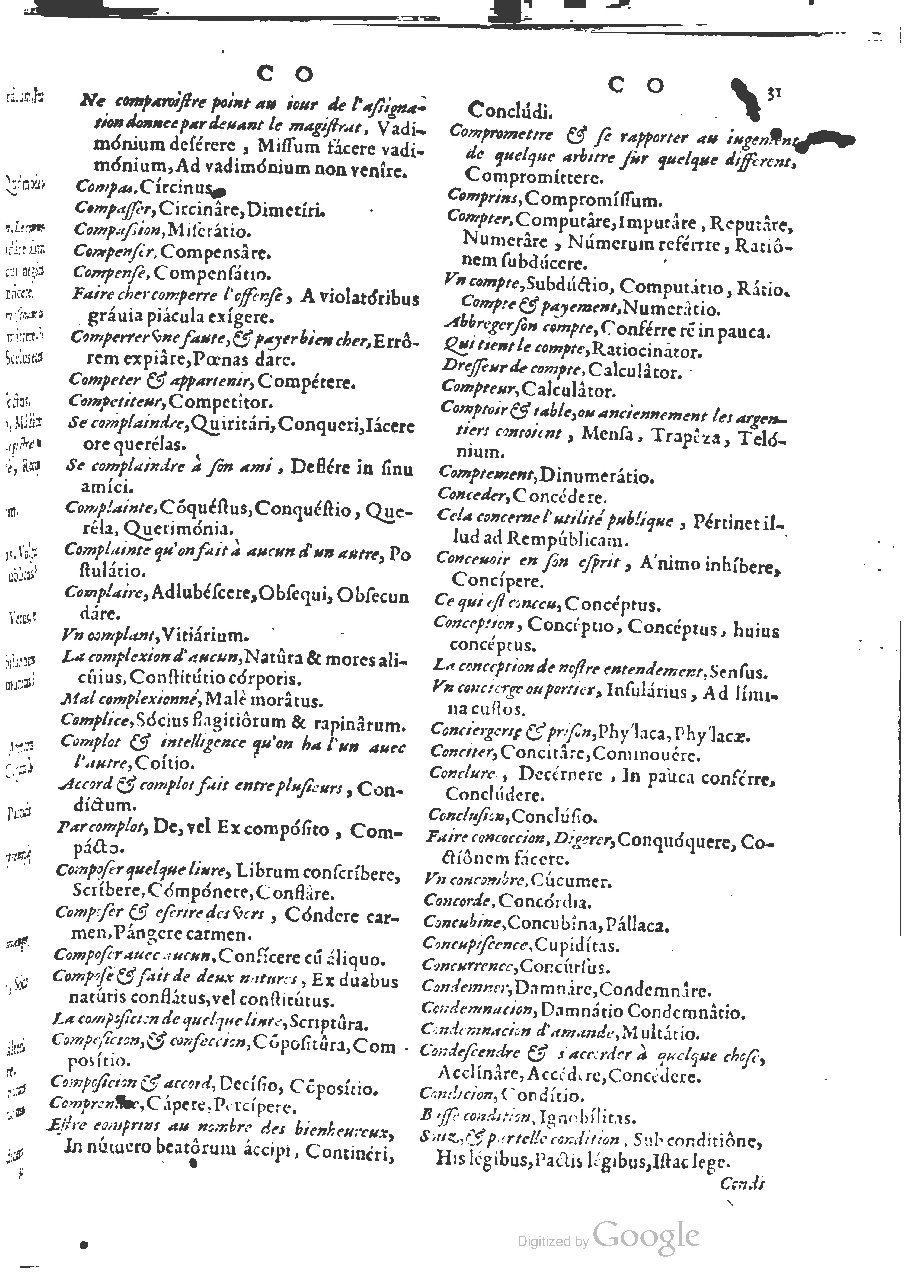 C O
Ne comparoistre point au iour de l'aſsigna-
tion donnee par deuant le magiſtrat, Vadi-
mónium deſérere, Miſſum fácere vadi-
mónium, Ad vadimónium non veníre.
Compas, Círcinus
Compaſſer, Circinâre, Dimetíri.
Compaſsion, Miſerátio.
Compenſer, Compensâre.
Compenſe, Compenſátio.
Faire cher comperre l'offenſe, A violatóribus
gráuia piácula exígere.
Comperrer vne faute, & payer bien cher, Errô-
rem expiâre, Pœnas dare.
Competer & appartenir, Compétere.
Competiteur, Competîtor.
Se complaindre, Quiritári, Conqueri, Iácere
ore querélas.
Se complaindre à ſon ami, Deflére in ſinu
amíci.
Complainte, Cõquéſtus, Conquéſtio, Que-
réla, Querimónia.
Complainte qu'on fait à aucun d'un autre, Po
ſtulátio.
Complaire, Adlubéſcere, Obſequi, Obſecun
dáre.
Vn complant, Vitiárium.
La complexion d'aucun, Natûra & mores ali-
cúius, Conſtitútio córporis.
Mal complexionné, Malè morâtus.
Complice, Sócius flagitiôrum & rapinârum.
Complot & intelligence qu'on ha l'un auec
l'autre, Coítio.
Accord & complot fait entre pluſieurs, Con-
díctum.
Par complot, De, vel Ex compóſito, Com-
pácto.
Compoſer quelque liure, Librum conſcríbere,
Scríbere, Cómpónere, Conflàre.
Compoſer & eſcrire des vers, Cóndere car-
men, Pángere carmen.
Compoſer auec aucun, Confícere cũ áliquo.
Compoſe & fait de deux natures, Ex duabus
natúris conflátus, vel conſtitútus.
La compoſicion de quelque liure, Scriptûra.
Compoſicion, & confeccion, Cõpoſitûra, Com-
poſítio.
Compoſicion & accord, Decíſio, Cõpoſítio.
Comprendre, Cápere, Percípere.
Eſtre comprins au nombre des bienheureux,
In número beatôrum áccipi, Continéri,
C O 31
Conclúdi.
Compromettre & ſe rapporter au iugement
de quelque arbitre ſur quelque different,
Compromíttere.
Comprins, Compromíſſum.
Compter, Computâre, Imputâre, Reputâre,
Numerâre, Númerum reférrre, Ratiô-
nem ſubdúcere.
Vn compte, Subdúctio, Computátio, Rátio.
Compte & payement, Numerâtio.
Abbreger ſon compte, Conférre rẽ in pauca.
Qui tient le compte, Ratiocinâtor.
Dreſſeur de compte, Calculâtor.
Compteur, Calculâtor.
Comptoir & table, ou anciennement les argen-
tiers contoient, Menſa, Trapêza, Teló-
nium.
Comptement, Dinumerátio.
Conceder, Concédere.
Cela concerne l'utilité publique, Pértinet il-
lud ad Rempúblicam.
Conceuoir en ſon eſprit, A'nimo inhíbere,
Concípere.
Ce qui eſt conceu, Concéptus.
Conception, Concéptio, Concéptus, huius
concéptus.
La conception de noſtre entendement, Senſus.
Vn concierge ou portier, Inſulárius, Ad límı-
na cuſtos.
Conciergerie & priſon, Phy'laca, Phy'lacæ.
Conciter, Concitâre, Commouére.
Conclure, Decérnere, In pauca conférre,
Conclúdere.
Concluſion, Conclúſio.
Faire concoccion, Digerer, Conquóquere, Co-
ctiônem fácere.
Vn concombre, Cúcumer.
Concorde, Concórdia.
Concubine, Concubîna, Pállaca.
Concupiſcence, Cupidítas.
Concurrence, Concúrſus.
Condemner, Damnâre, Condemnâre.
Condemnacion, Damnátio Condemnâtio.
Condemnacion d'amande, Multátio.
Condeſcendre & s'accorder à quelque choſe,
Acclinâre, Accédere, Concédere.
Condicion, Condítio.
Baſſe condition, Ignobílitas.
Souz, & par telle condition, Sub conditiône,
His légibus, Pactis légibus, Iſtac lege.
Condi
Digitized by Google